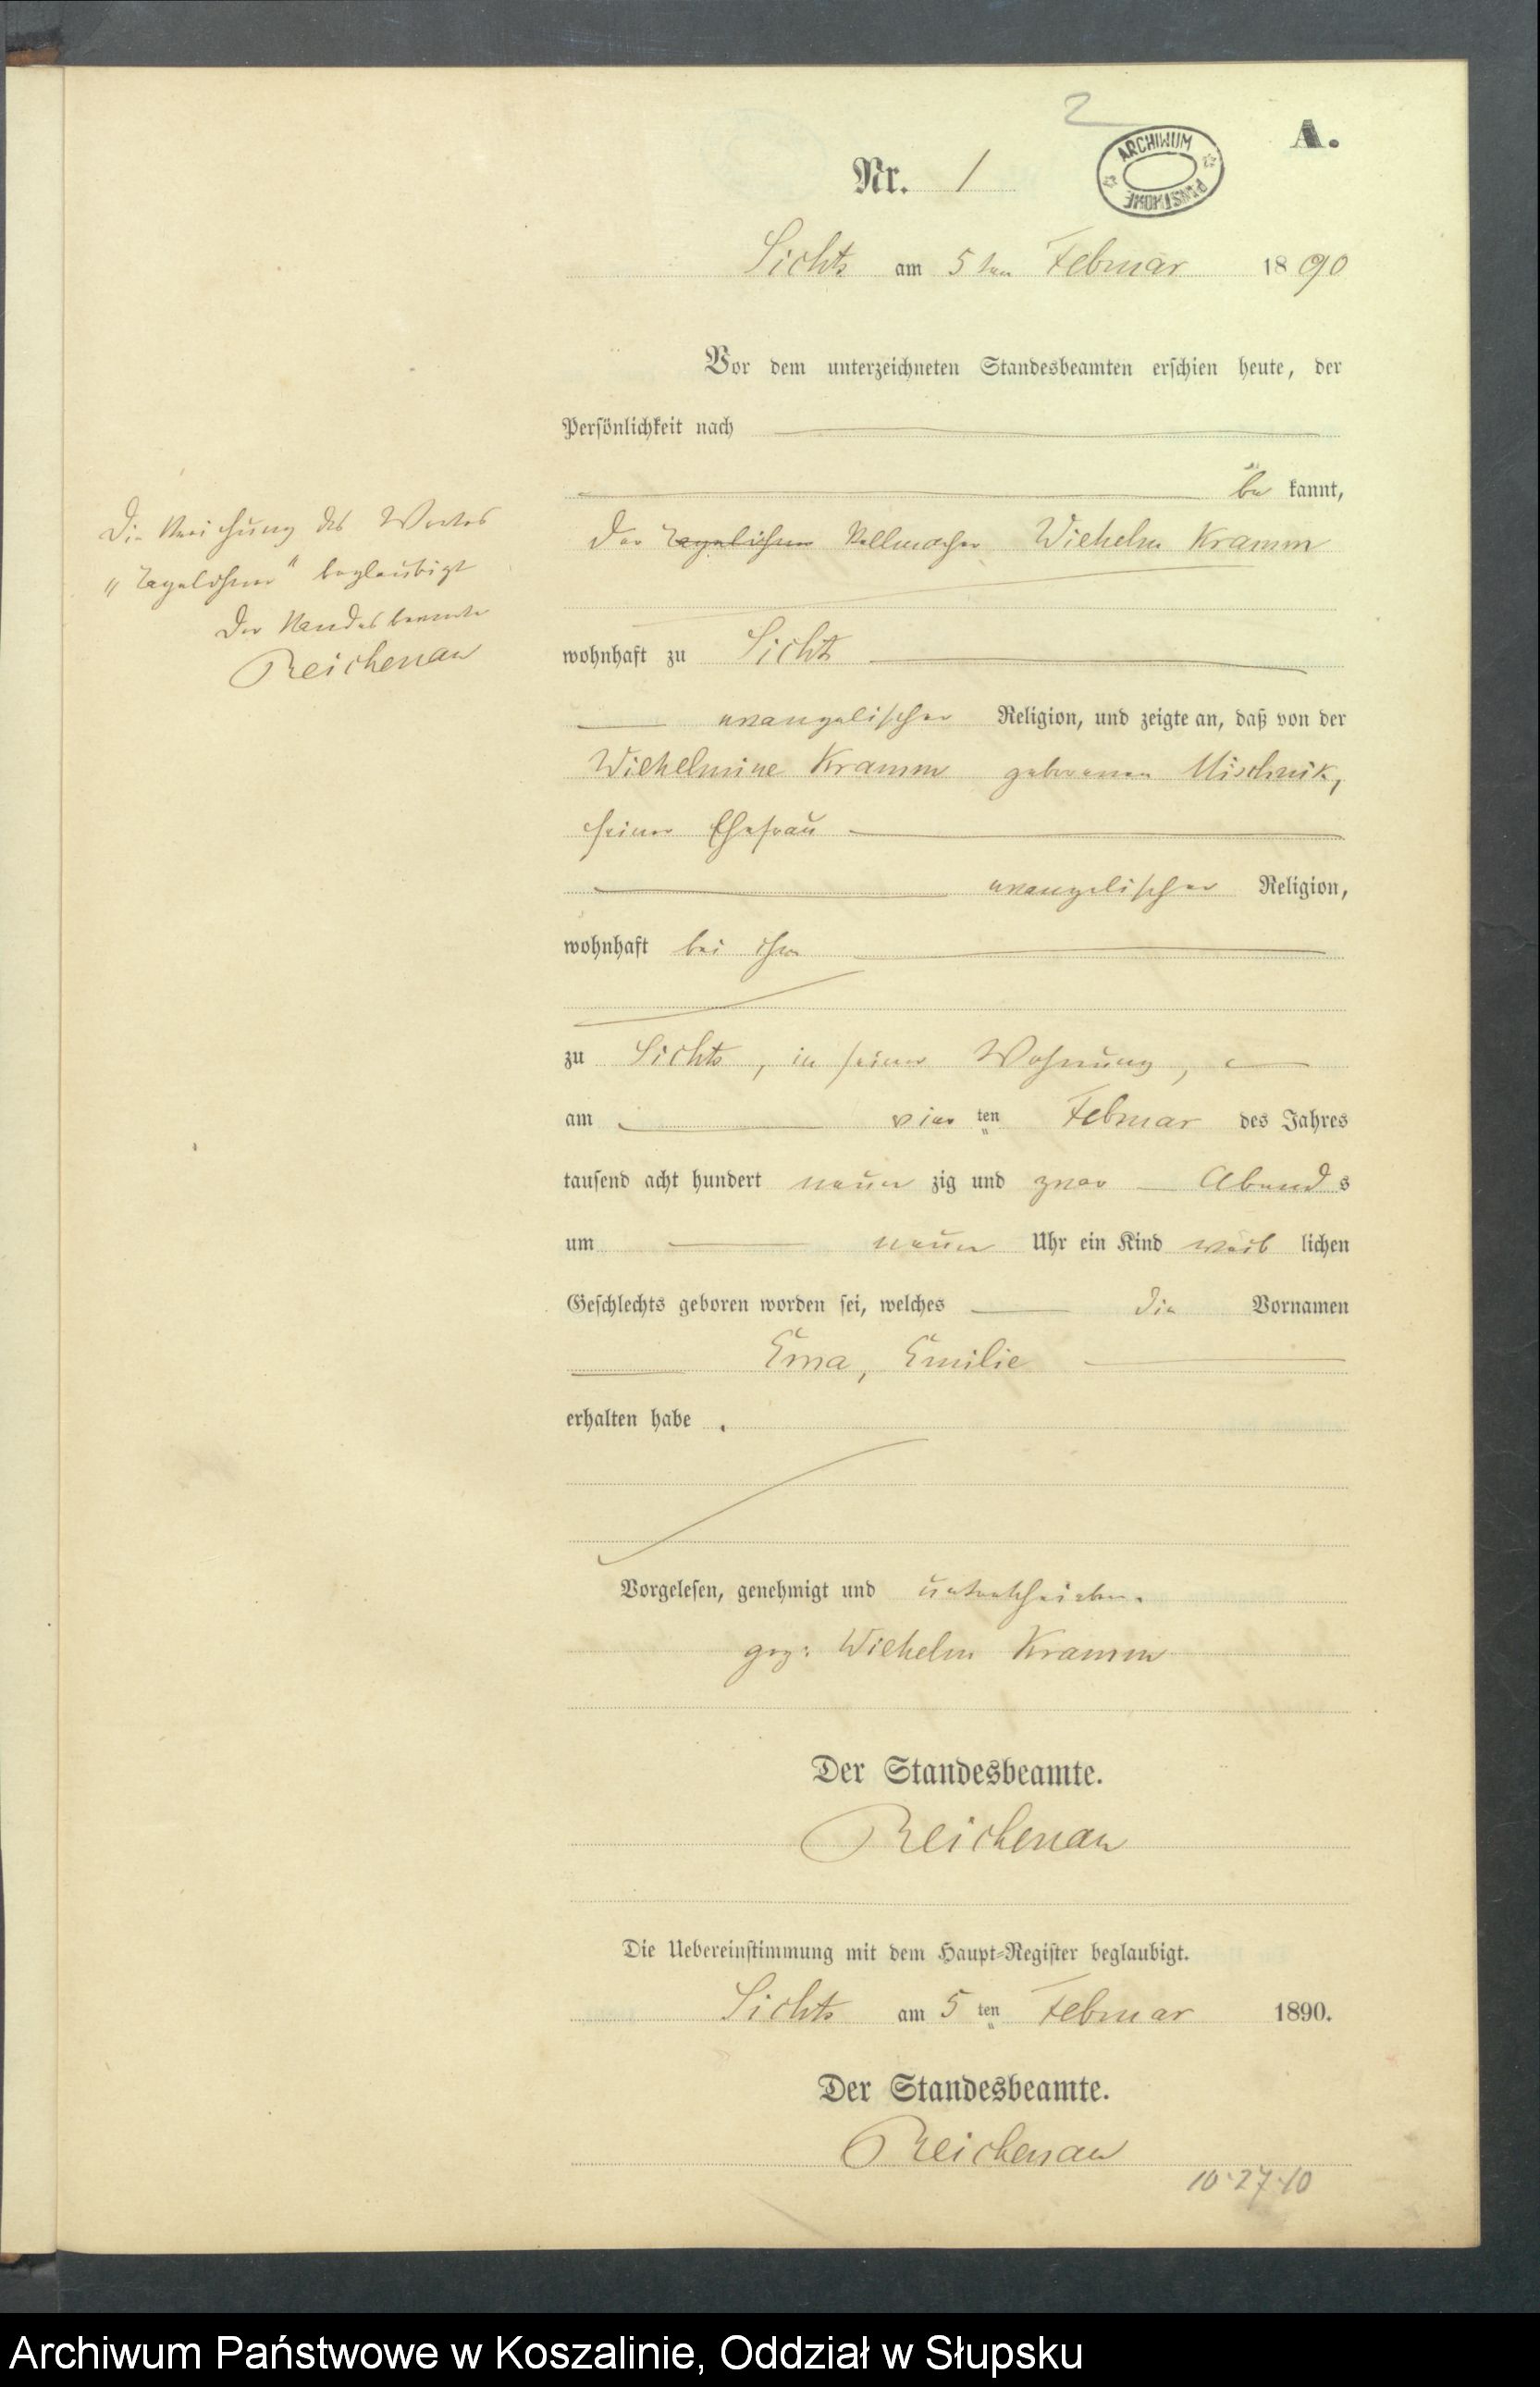 2
A.
ARCHIWUM PAŃSTWOWE
Nr. 1
Sichts am 5ten Februar 1890
Vor dem unterzeichneten Standesbeamten erschien heute, der
Persönlichkeit nach
be kannt,
der Tagelöhner Stellmacher Wilhelm Kramm
Die Streichung des Wortes
„Tagelöhner" beglaubigt
Der Standesbeamte
Reichenau
wohnhaft zu Sichts
evangelischer Religion, und zeigte an, daß von der
Wilhelmine Kramm geborenen Mischnik,
seiner Ehefrau
evangelischer Religion,
wohnhaft bei ihm
zu Sichts, in seiner Wohnung,
am vier ten Februar des Jahres
tausend acht hundert neun zig und zwar Abends
um neun Uhr ein Kind weib lichen
Geschlechts geboren worden sei, welches die Vornamen
Erna, Emilie
erhalten habe.
Vorgelesen, genehmigt und unterschrieben.
gez: Wilhelm Kramm
Der Standesbeamte.
Reichenau
Die Uebereinstimmung mit dem Haupt-Register beglaubigt.
Sichts am 5 ten Februar 1890.
Der Standesbeamte.
Reichenau
10-27-10
Archiwum Państwowe w Koszalinie, Oddział w Słupsku